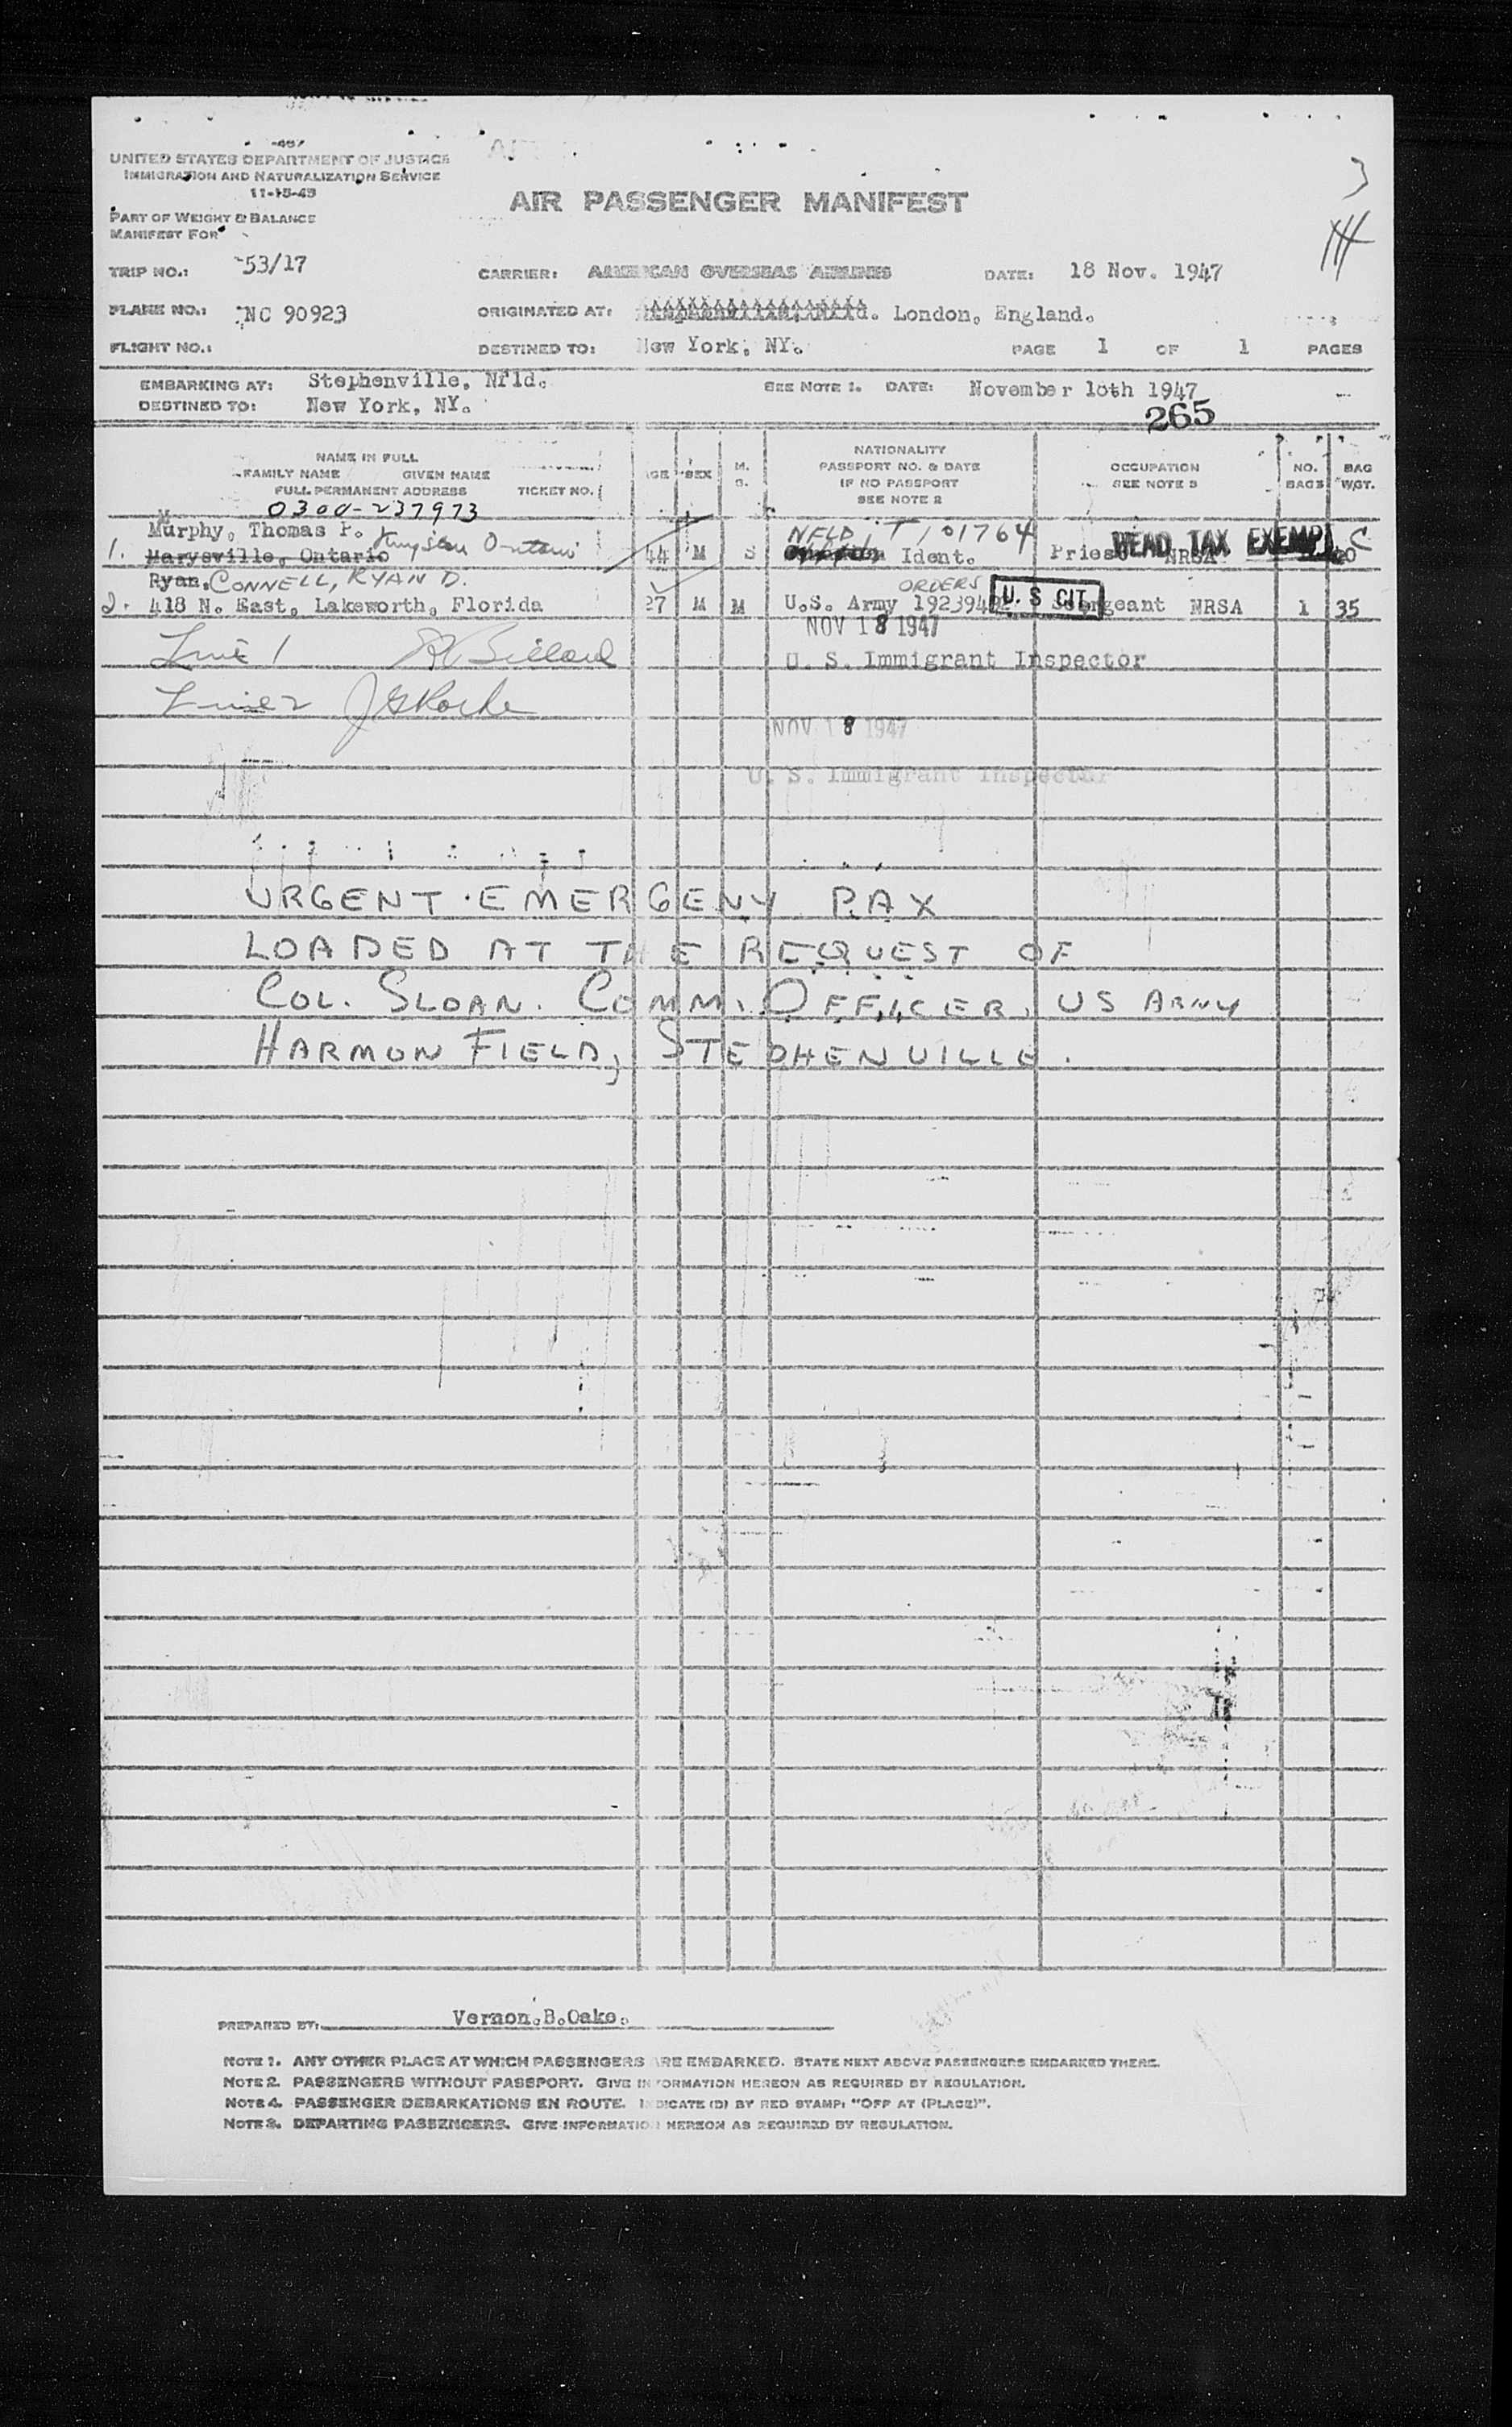 UNITED STATES DEPARTMENT OF JUSTICE
IMMIGRATION AND NATURALIZATION SERVICE
11-15-45
AIR PASSENGER MANIFEST
3
PART OF WEIGHT & BALANCE
MANIFEST FOR
TRIP NO.: 53/17 CARRIER: AMERICAN OVERSEAS AIRLINES DATE: 18 Nov. 1947
PLANE NO.: NC 90923 ORIGINATED AT: London, England.
FLIGHT NO.: DESTINED TO: New York, NY. PAGE 1 OF 1 PAGES
EMBARKING AT: Stephenville, Nfld. SEE NOTE 1. DATE: November 18th 1947
DESTINED TO: New York, NY.
265
NAME IN FULL
FAMILY NAME GIVEN NAME
FULL PERMANENT ADDRESS TICKET NO.
AGE SEX M. S.
NATIONALITY
PASSPORT NO. & DATE
IF NO PASSPORT
SEE NOTE 2
OCCUPATION
SEE NOTE 3
NO. BAGS
BAG WGT.
0300-237973
Murphy, Thomas P. NFLD, T, 01764
1. Marysville, Ontario Kingston Ontario 44 M S Ident. Priest NRSA HEAD TAX EXEMPT C
Ryan, CONNELL, RYAN D. ORDERS
2. 418 N. East, Lakeworth, Florida 27 M M U.S. Army U. S CIT Sergeant NRSA 1 35
NOV 18 1947
Line 1 U. S. Immigrant Inspector
Line 2 J G Roche
NOV 18 1947
U. S. Immigrant Inspector
URGENT · EMERGENY PAX
LOADED AT THE REQUEST OF
COL. SLOAN. COMM. OFFICER, US ARMY
HARMON FIELD, STEPHENVILLE.
PREPARED BY: Vernon.B.Oake.
NOTE 1. ANY OTHER PLACE AT WHICH PASSENGERS ARE EMBARKED. STATE NEXT ABOVE PASSENGERS EMBARKED THERE.
NOTE 2. PASSENGERS WITHOUT PASSPORT. GIVE INFORMATION HEREON AS REQUIRED BY REGULATION.
NOTE 4. PASSENGER DEBARKATIONS EN ROUTE. INDICATE (D) BY RED STAMP: "OFF AT (PLACE)".
NOTE 3. DEPARTING PASSENGERS. GIVE INFORMATION HEREON AS REQUIRED BY REGULATION.